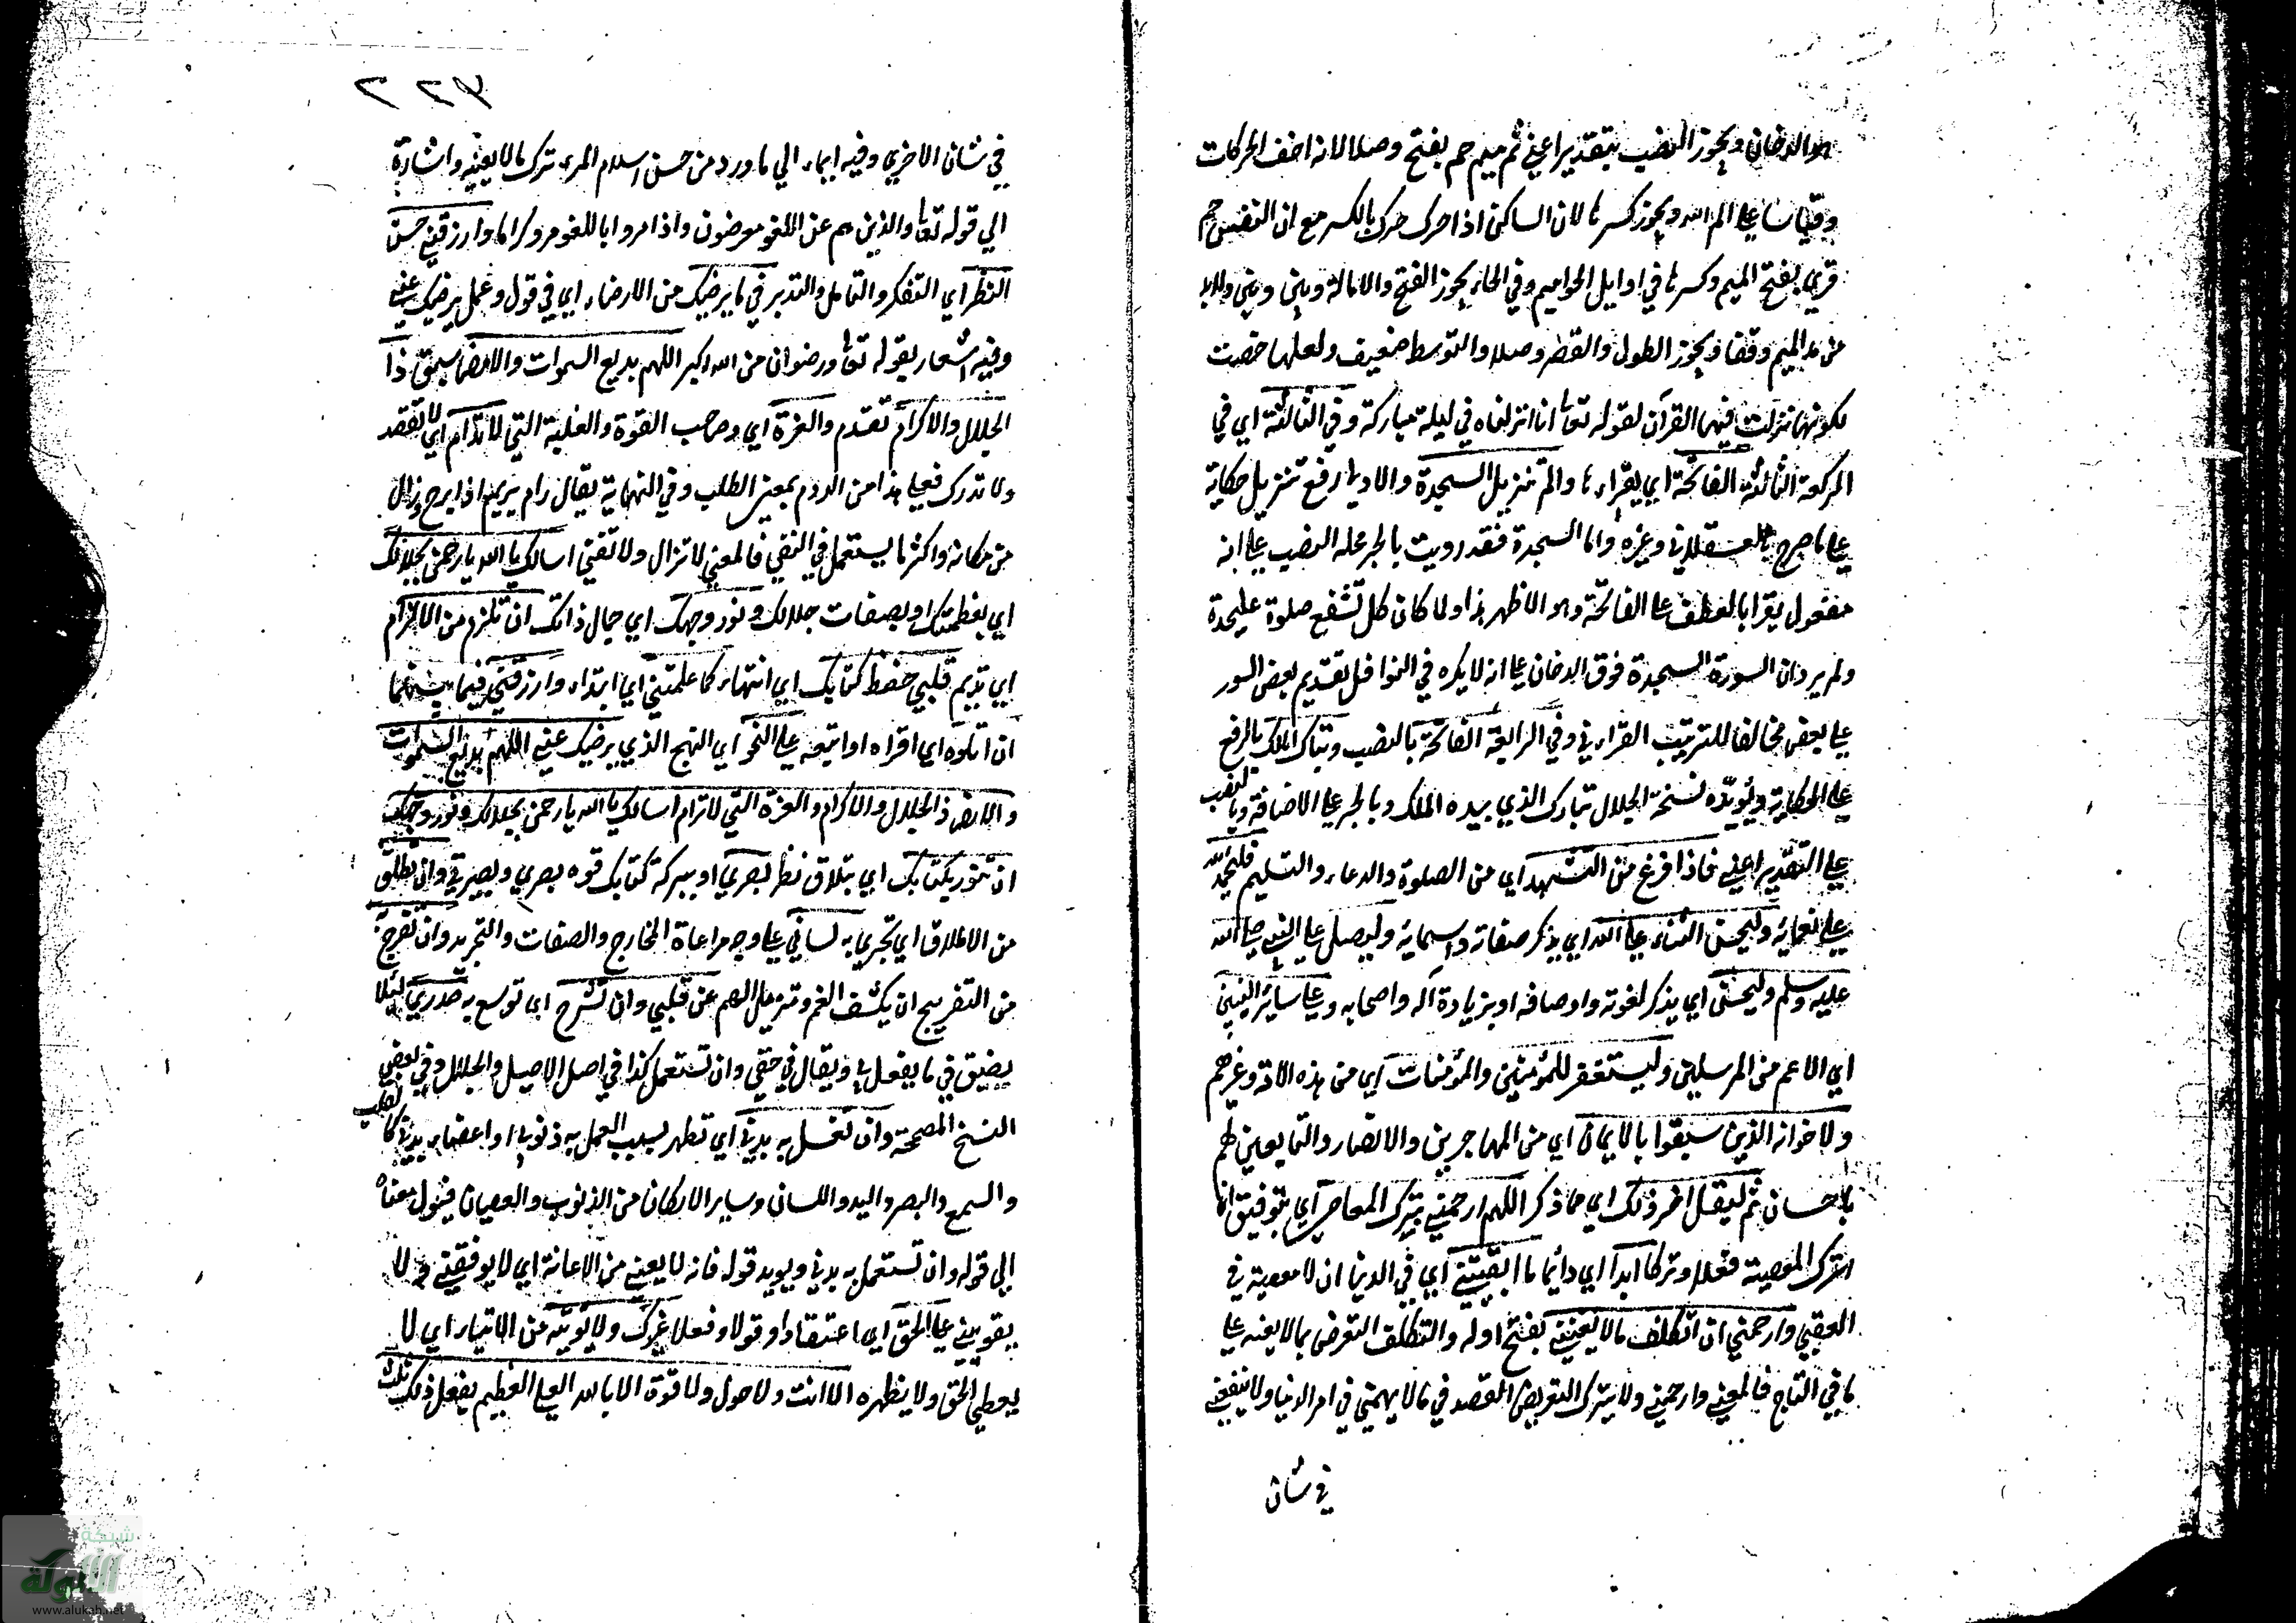 حم الدخان ويجوز النصب بتقدير اعني ثم ميم حم يفتح وصلا لانه اخف الحركات
وقياسا على الم الله ويجوز كسرها لان الساكن اذا حرك حرك بالكسر مع ان النفس حم
قرئ بفتح الميم وكسرها في اوايل الحواميم وفي الحاء يجوز الفتح والامالة وبين وبين ولا بد
من مد الميم وقفا ويجوز الطول والقصر وصلا والتوسط ضعيف ولعلها خصت
لكونها نزلت فيها القرآن لقوله تعا انا انزلناه في ليلة مباركة وفي الثالثة اي في
الركعة الثالثة الفاتحة اي يقراءها والم تنزيل السجدة والاوليا رفع تنزيل حكاية
على ما صرح به العسقلاني وغيره واما السجدة فقد رويت بالجر محله النصب على انه
مفعول يقرا بالعطف على الفاتحة وهو الاظهر هذا ولما كان كل تشفع صلوة عليحدة
ولم يرد ان السورة السجدة فوق الدخان على انه لا يكره في النوافل تقديم بعض السور
على بعض مخالفا للترتيب القراني وفي الرابعة الفاتحة بالنصب وتبارك الملك بالرفع
على الحكاية ويؤيده نسخة الجلال تبارك الذي بيده الملك وبالجر على الاضافة وبالنصب
على التقدير اعني فاذا فرغ من التشهد اي من الصلوة والدعاء والتسليم فليحمد الله
على نعمائه وليحسن الثناء على الله اي بذكر صفاته واسمائه وليصل على النبي صلى الله
عليه وسلم وليحسن اي يذكر نعوته واوصافه او بزيادة آله واصحابه وعلى سائر النبيين
اي الاعم من المرسلين وليستغفر للمؤمنين والمؤمنات اي من هذه الامة وغيرهم
ولاخوانه الذين سبقوا بالايمان اي من المهاجرين والانصار والتابعين لهم
باحسان ثم ليقل اخر ذلك اي مما ذكر اللهم ارحمني بترك المعاصي اي بتوفيق انا
اترك المعصية فعلا وتركا ابدا اي دائما ما ابقيتني اي في الدنيا ان لا معصية في
العقبي وارحمني ان اتكلف ما لا يعنيني بفتح اوله والتكلف التعرض بما لا يعنيه على
ما في التاج فالمعني وارحمني ولا بترك التعريض القصد في ما لا يهمني في امر الدنيا ولا ينفعني
في شان
٢٢٣ ٢
في شان الاخرى وفيه ايماء الي ما ورد من حسن اسلام المرء تركه ما لا يعنيه واشارة
الي قوله تعا والذين هم عن اللغو معرضون واذا مروا باللغو مروا كراما وارزقني حسن
النظر اي التفكر والتامل والتدبر في ما يرضيك من الارضاء اي في قول وعمل يرضيك عني
وفيه اشعار بقوله تعا ورضوان من الله اكبر اللهم بديع السموات والارض اسبق ذا
الجلال والاكرام تقدم والعزة اي وصاحب القوة والغلبة التي لا ترام اي لا تقصد
ولا تدرك فعلى هذا من الروم بمعنى الطلب وفي النهاية يقال رام يريم اذا برح وزال
من مكانه واكثر ما يستعمل في النفي فالمعني لا تزال ولا تفني اسالك يا الله يا رحمن بجلالك
اي بعظمتك او بصفات جلالك ونور وجهك اي جمال ذاتك ان تلزم من الالزام
اي تديم قلبي حفظ كتابك اي انتهاء كما علمتني اي ابتداء وارزقني فيما بينهما
ان اتلوه اي اقراه او اتبعه على النحو اي النهج الذي يرضيك عني اللهم بديع السموات
والارض ذا الجلال والاكرام والعزة التي لا ترام اسالك يا الله يا رحمن بجلالك ونور وجهك
ان تنور بكتابك اي بتلاق نظر بصري او ببركة كتابك قوه بصري وبصيرتي وان تطلق
من الاطلاق اي تجري به لساني على وجه مراعاة المخارج والصفات والتجريد وان تفرج
من التفريج ان يكشف الغم وتزيل الهم عن قلبي وان تشرح اي توسع به صدري لئلا
يضيق في ما يفعل بي ويقال في حقي وان تستعمل كذا في اصل الاصيل والجلال وفي بعض
النسخ المصححة وان تغسل به بدني اي تطهر بسبب العمل به ذنوبها او اعضاء بدني كالقلب
والسمع والبصر واليد واللسان وساير الاركان من الذنوب والعصيان فيئول معناه
الي قوله وان تستعمل به بدني ويويد قوله فانه لا يعنيني من الاعانة اي لا يوفقني ولا
يقويني على الحق اي اعتقادا وقولا وفعلا غيرك ولا يؤتيه من الايتاء اي لا
يعطي الحق ولا يظهره الا انت ولا حول ولا قوة الا بالله العلي العظيم يفعل ذلك ثلث
شبكة
الألوكة
www.alukah.net